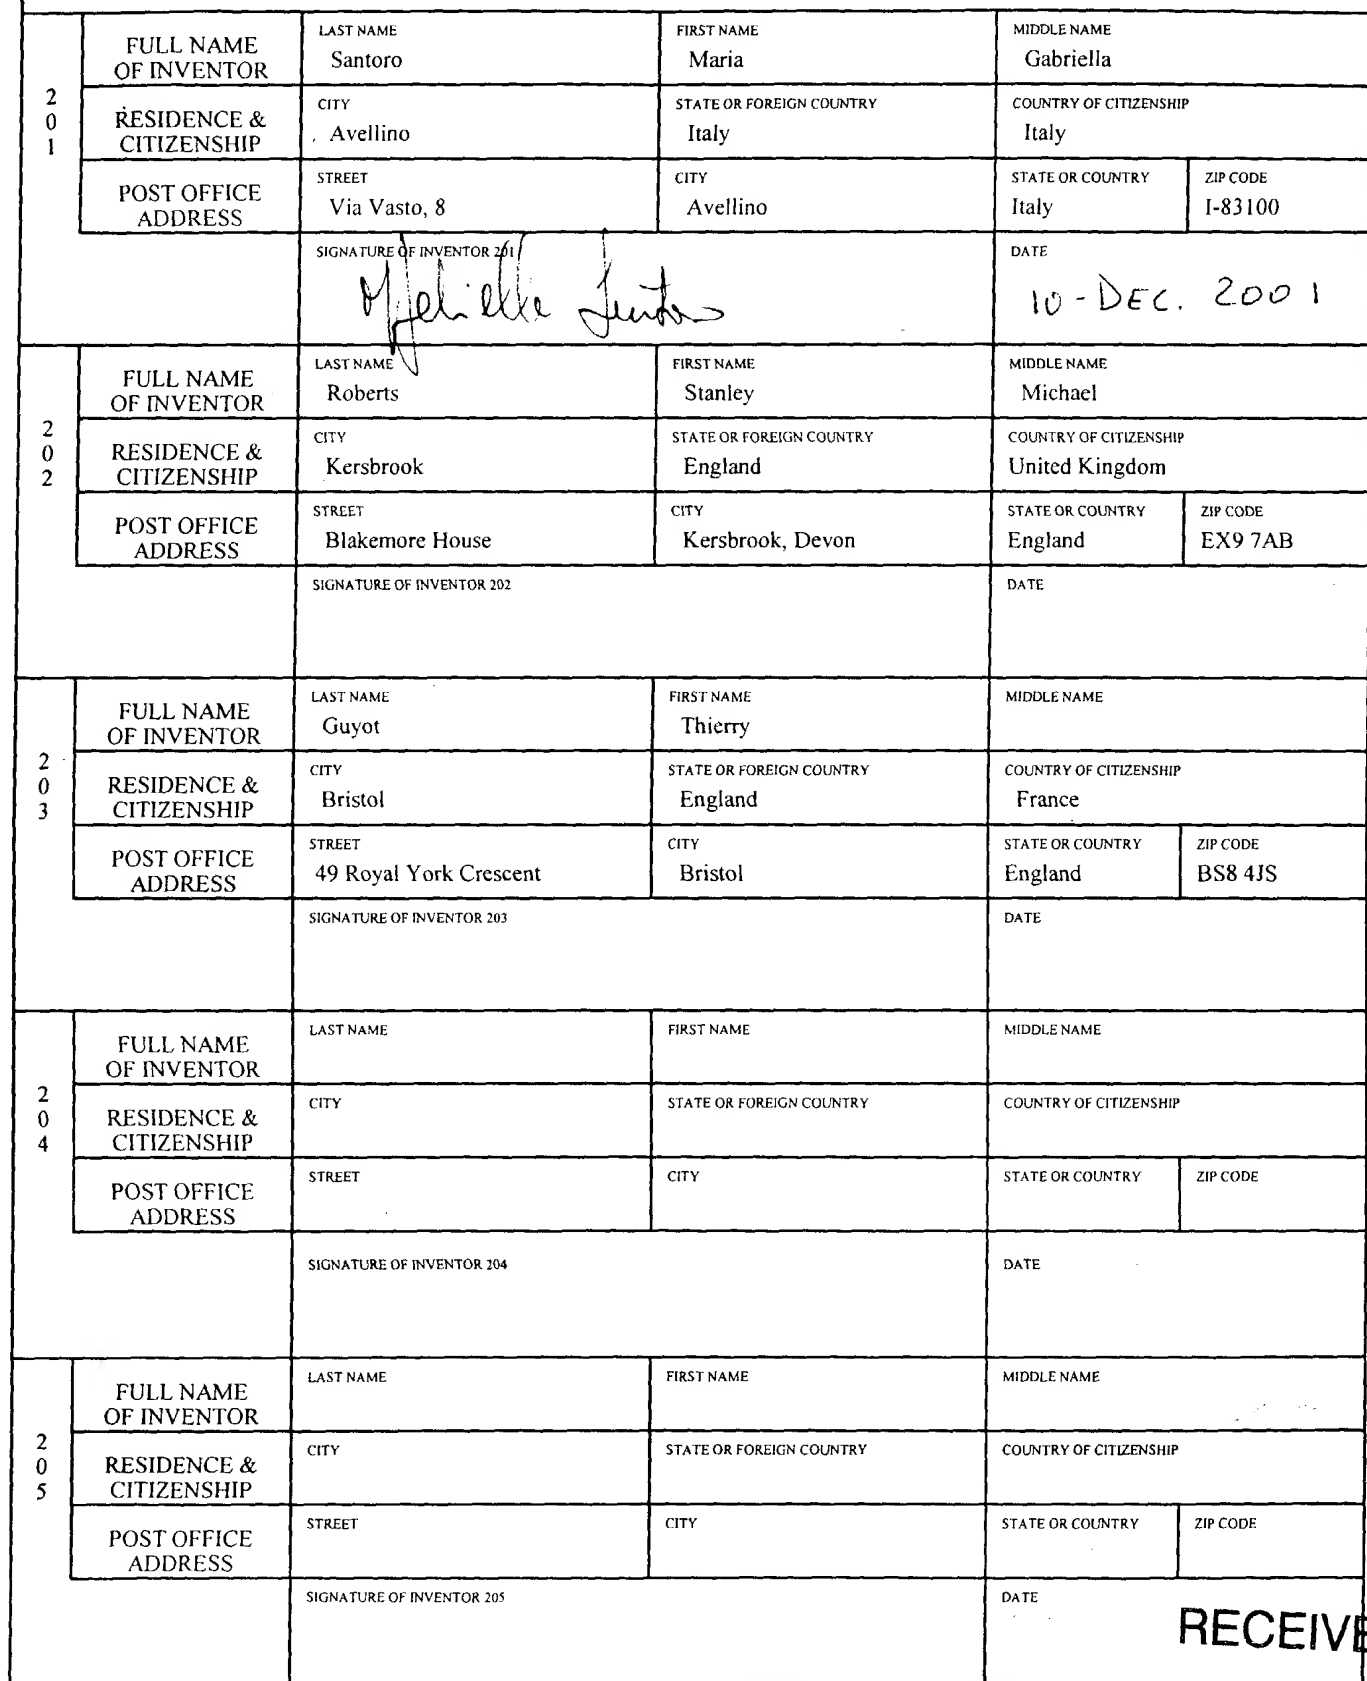 201
FULL NAME OF INVENTOR
LAST NAME
Santoro
FIRST NAME
Maria
MIDDLE NAME
Gabriella
RESIDENCE & CITIZENSHIP
CITY
Avellino
STATE OR FOREIGN COUNTRY
Italy
COUNTRY OF CITIZENSHIP
Italy
POST OFFICE ADDRESS
STREET
Via Vasto, 8
CITY
Avellino
STATE OR COUNTRY
Italy
ZIP CODE
I-83100
SIGNATURE OF INVENTOR 201
DATE
10-DEC. 2001
202
FULL NAME OF INVENTOR
LAST NAME
Roberts
FIRST NAME
Stanley
MIDDLE NAME
Michael
RESIDENCE & CITIZENSHIP
CITY
Kersbrook
STATE OR FOREIGN COUNTRY
England
COUNTRY OF CITIZENSHIP
United Kingdom
POST OFFICE ADDRESS
STREET
Blakemore House
CITY
Kersbrook, Devon
STATE OR COUNTRY
England
ZIP CODE
EX9 7AB
SIGNATURE OF INVENTOR 202
DATE
203
FULL NAME OF INVENTOR
LAST NAME
Guyot
FIRST NAME
Thierry
MIDDLE NAME
RESIDENCE & CITIZENSHIP
CITY
Bristol
STATE OR FOREIGN COUNTRY
England
COUNTRY OF CITIZENSHIP
France
POST OFFICE ADDRESS
STREET
49 Royal York Crescent
CITY
Bristol
STATE OR COUNTRY
England
ZIP CODE
BS8 4JS
SIGNATURE OF INVENTOR 203
DATE
204
FULL NAME OF INVENTOR
LAST NAME
FIRST NAME
MIDDLE NAME
RESIDENCE & CITIZENSHIP
CITY
STATE OR FOREIGN COUNTRY
COUNTRY OF CITIZENSHIP
POST OFFICE ADDRESS
STREET
CITY
STATE OR COUNTRY
ZIP CODE
SIGNATURE OF INVENTOR 204
DATE
205
FULL NAME OF INVENTOR
LAST NAME
FIRST NAME
MIDDLE NAME
RESIDENCE & CITIZENSHIP
CITY
STATE OR FOREIGN COUNTRY
COUNTRY OF CITIZENSHIP
POST OFFICE ADDRESS
STREET
CITY
STATE OR COUNTRY
ZIP CODE
SIGNATURE OF INVENTOR 205
DATE
RECEIVE